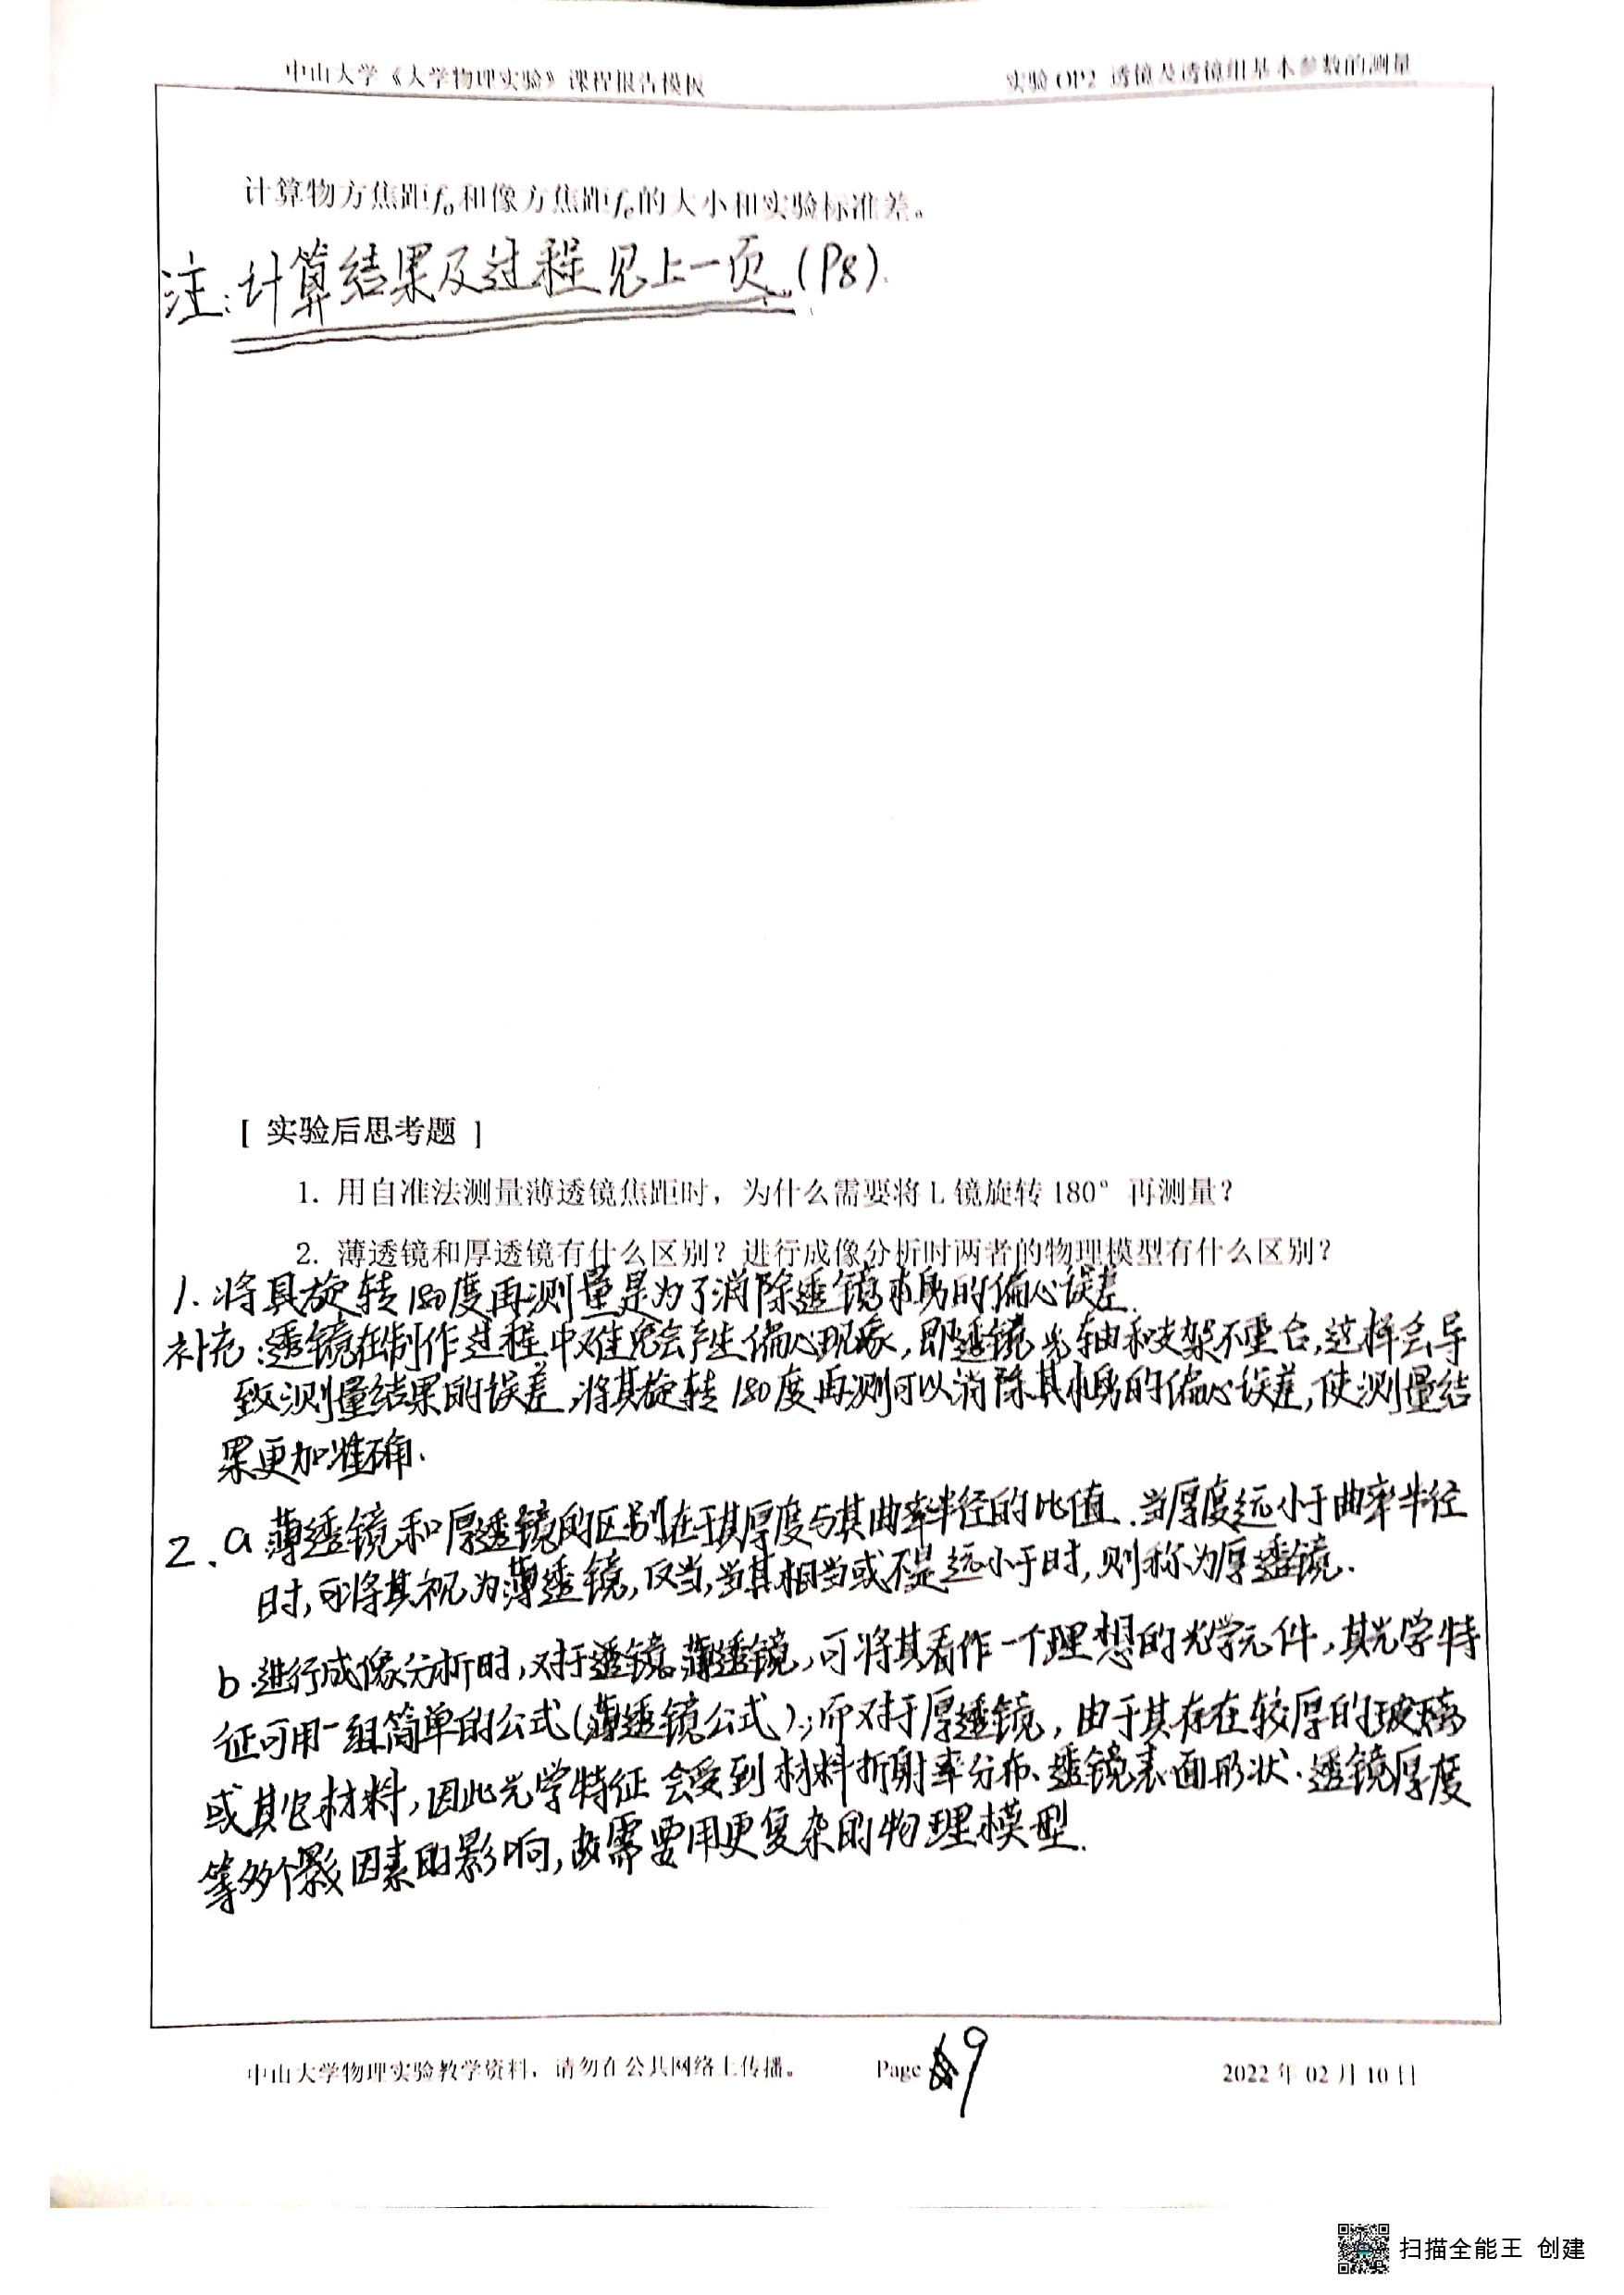 中山大学《大学物理实验》课程报告模板
实验 OP2 透镜及透镜组基本参数的测量
计算物方焦距f₀和像方焦距fₑ的大小和实验标准差。
注:计算结果及过程见上一页(P8).
[ 实验后思考题 ]
1. 用自准法测量薄透镜焦距时，为什么需要将 L 镜旋转 180° 再测量？
2. 薄透镜和厚透镜有什么区别？进行成像分析时两者的物理模型有什么区别？
1. 将其旋转180度再测量是为了消除透镜本身的偏心误差.
补充:透镜在制作过程中难免会产生偏心现象,即透镜光轴和支架不重合,这样会导
致测量结果的误差,将其旋转180度再测可以消除其本身的偏心误差,使测量结
果更加准确.
2. a 薄透镜和厚透镜的区别在于其厚度与其曲率半径的比值.当厚度远小于曲率半径
时,可将其视为薄透镜,反当,当其相当或不是远小于时,则称为厚透镜.
b.进行成像分析时,对于透镜薄透镜,可将其看作一个理想的光学元件,其光学特
征可用一组简单的公式(薄透镜公式);而对于厚透镜,由于其存在较厚的玻璃
或其它材料,因此光学特征会受到材料折射率分布、透镜表面形状、透镜厚度
等多个因素的影响,故需要用更复杂的物理模型.
中山大学物理实验教学资料，请勿在公共网络上传播。
Page 9
2022 年 02 月 10 日
扫描全能王 创建